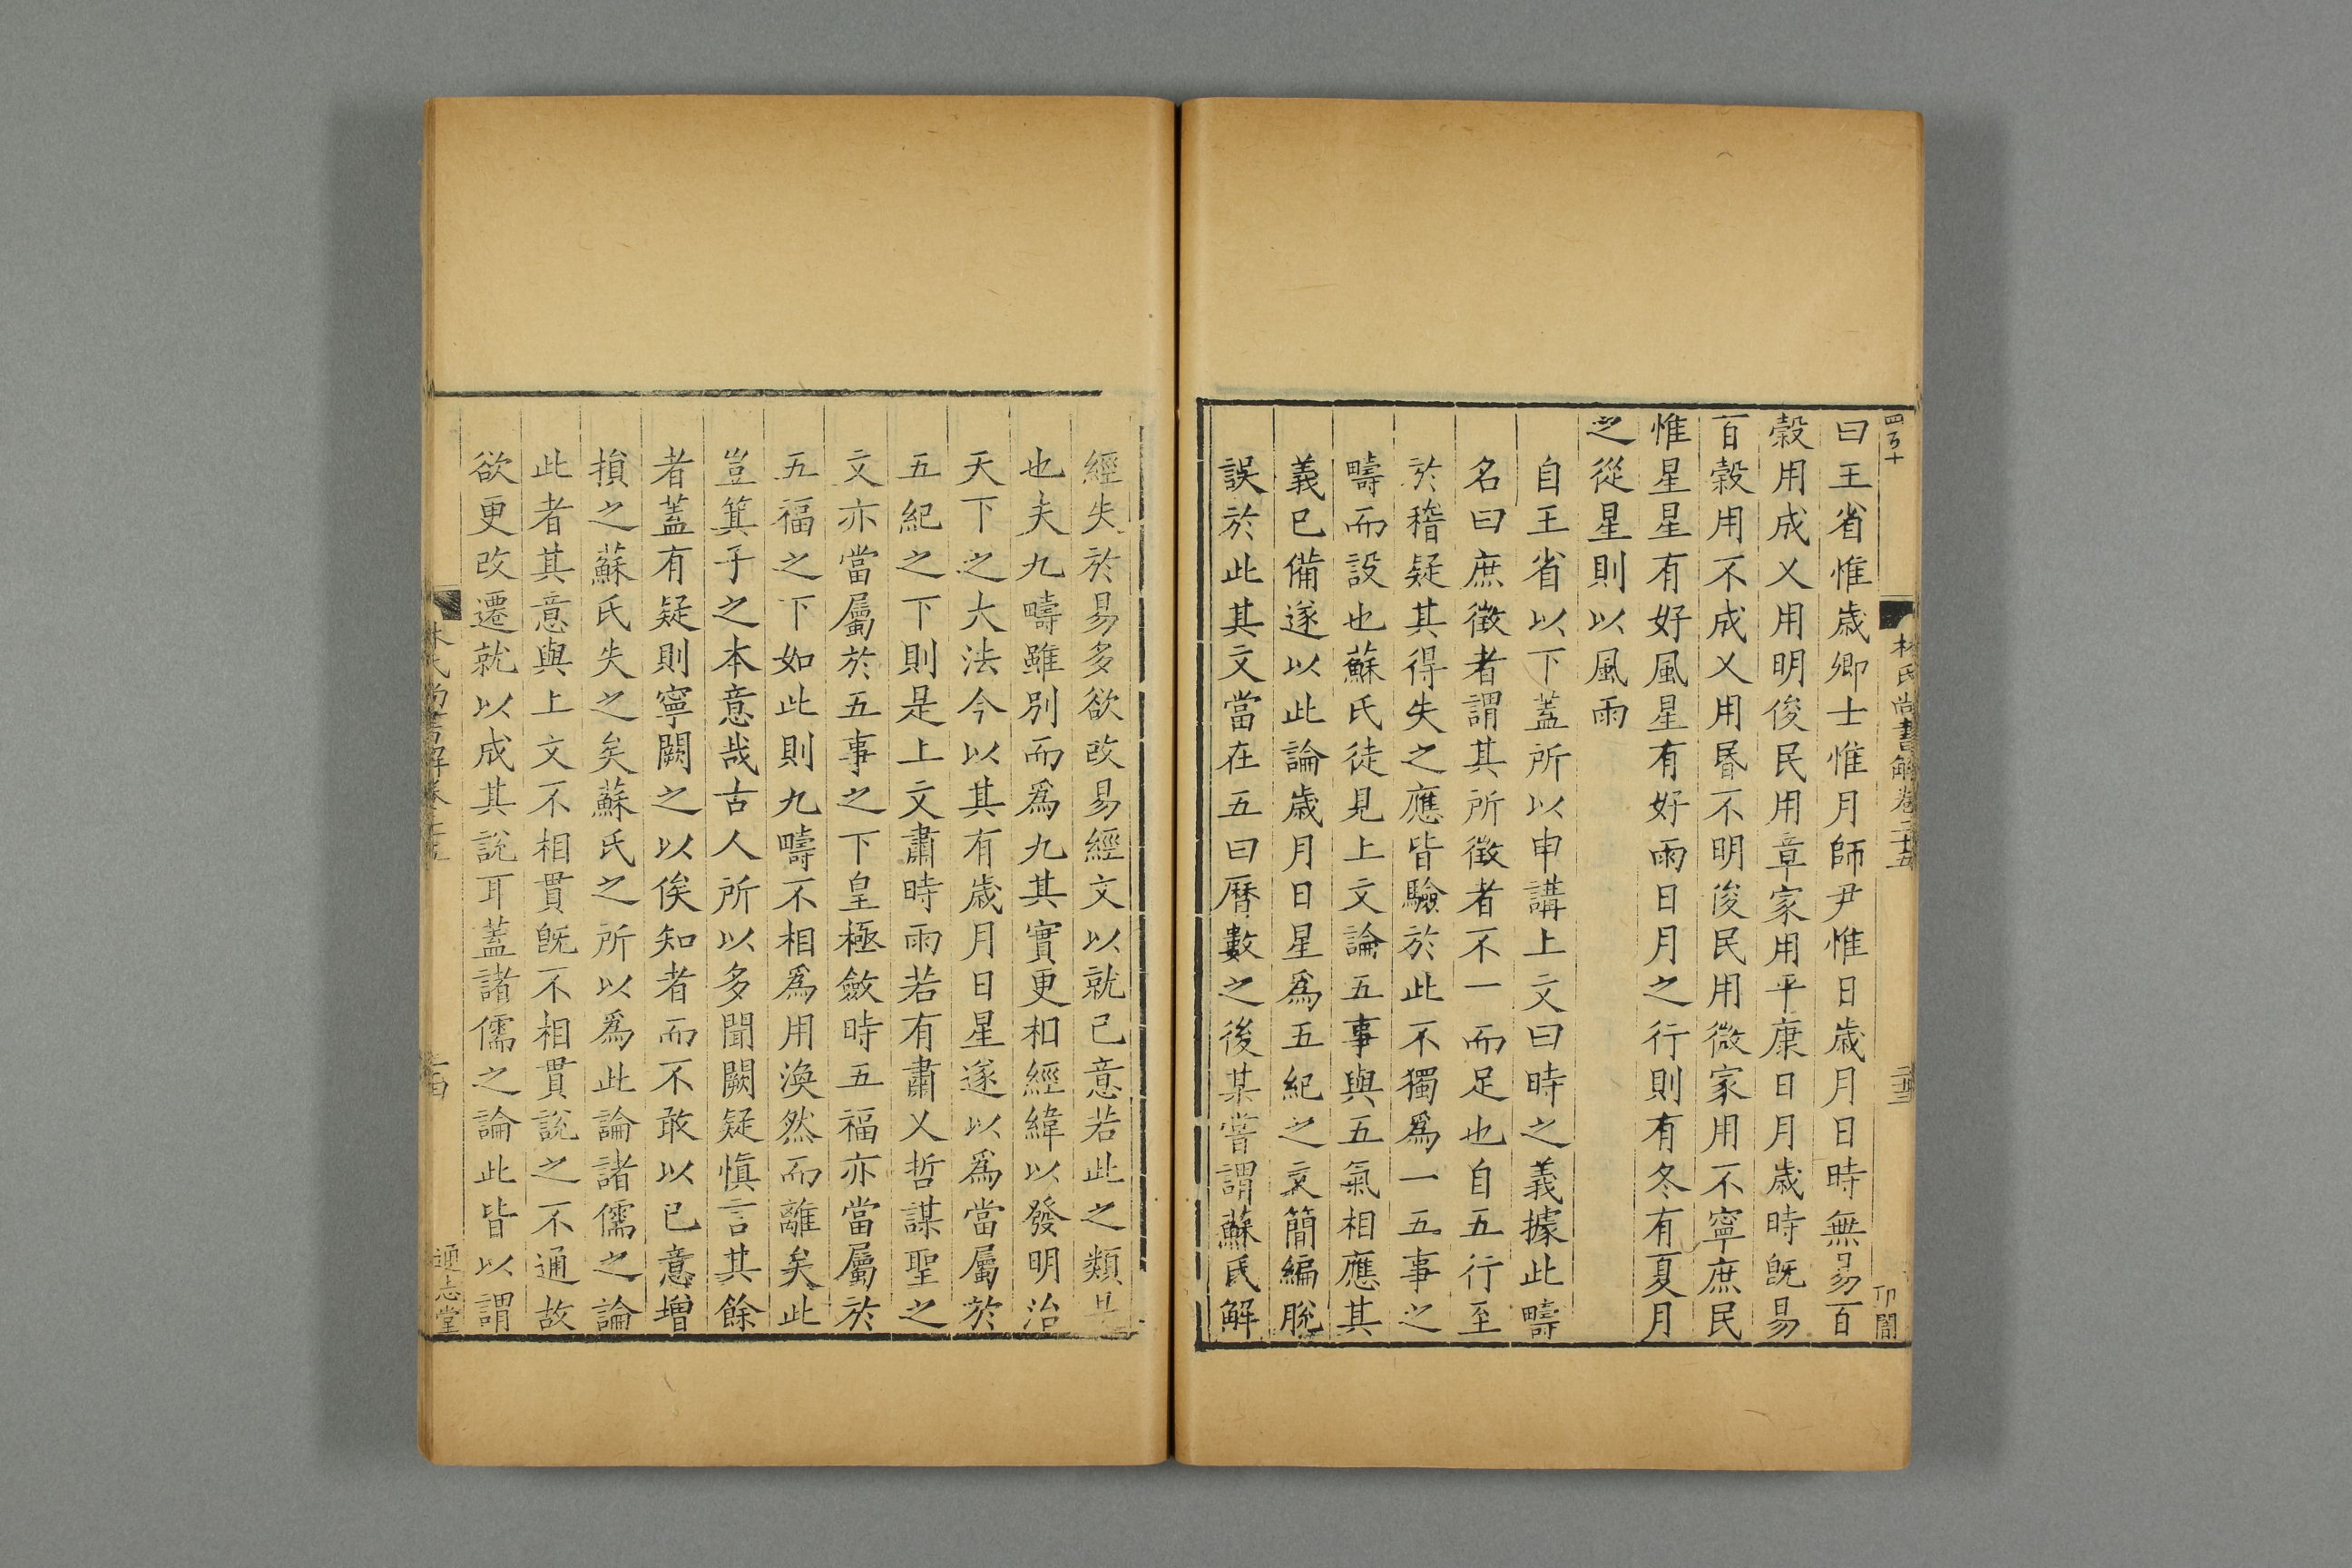 曰王省惟歲卿士惟月師尹惟日歲月日時無易百
穀用成乂用明俊民用章家用平康日月歲時旣易
百穀用不成乂用昬不明俊民用微家用不寧庶民
惟星星有好風星有好雨日月之行則有冬有夏月
之從星則以風雨
自王省以下蓋所以申講上文曰時之義據此疇
名曰庶徵者謂其所徵者不一而足也自五行至
於稽疑其得失之應皆驗於此不獨爲一五事之
疇而設也蘇氏徒見上文論五事與五氣相應其
義已備遂以此論歲月日星爲五紀之文簡編脫
誤於此其文當在五曰曆數之後某嘗謂蘇氏解
經失於易多欲改易經文以就己意若此之類是
也夫九疇雖別而爲九其實更相經緯以發明治
天下之大法今以其有歲月日星遂以爲當屬於
五紀之下則是上文肅時雨若有肅乂哲謀聖之
文亦當屬於五事之下皇極斂時五福亦當屬於
五福之下如此則九疇不相爲用渙然而離矣此
豈箕子之本意哉古人所以多聞闕疑愼言其餘
者蓋有疑則寧闕之以俟知者而不敢以已意增
損之蘇氏失之矣蘇氏之所以爲此論諸儒之論
此者其意與上文不相貫旣不相貫說之不通故
欲更改遷就以成其說耳蓋諸儒之論此皆以謂
四百十
林氏尚書解卷二十五
卭闇
林氏尚書解卷二十五
通志堂